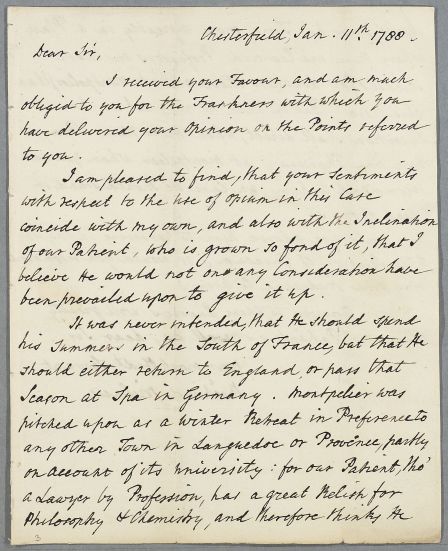 Chesterfield, Jan. 11th 1788.
Dear Sir,
I received your Favour, and am much
obliged to you for the Frankness with which you
have delivered your Opinion on the Points referred
to you.
I am pleased to find, that your Sentiments
with respect to the Use of Opium in this Case
coincide with my own, and also with the Inclination
of our Patient, who is grown so fond of it, that I
believe He would not on any Consideration have
been prevailed upon to give it up.
It was never intended, that He should spend
his Summers in the South of France, but that He
should either return to England, or pass that
Season at Spa in Germany. Montpelier was
pitched upon as a Winter Retreat in Preference to
any other Town in Languedoc or Provence, partly
on Account of its University: for our Patient, tho'
a Lawyer by Profession, has a great Relish for
Philosophy & Chemistry, and therefore thinks He
3